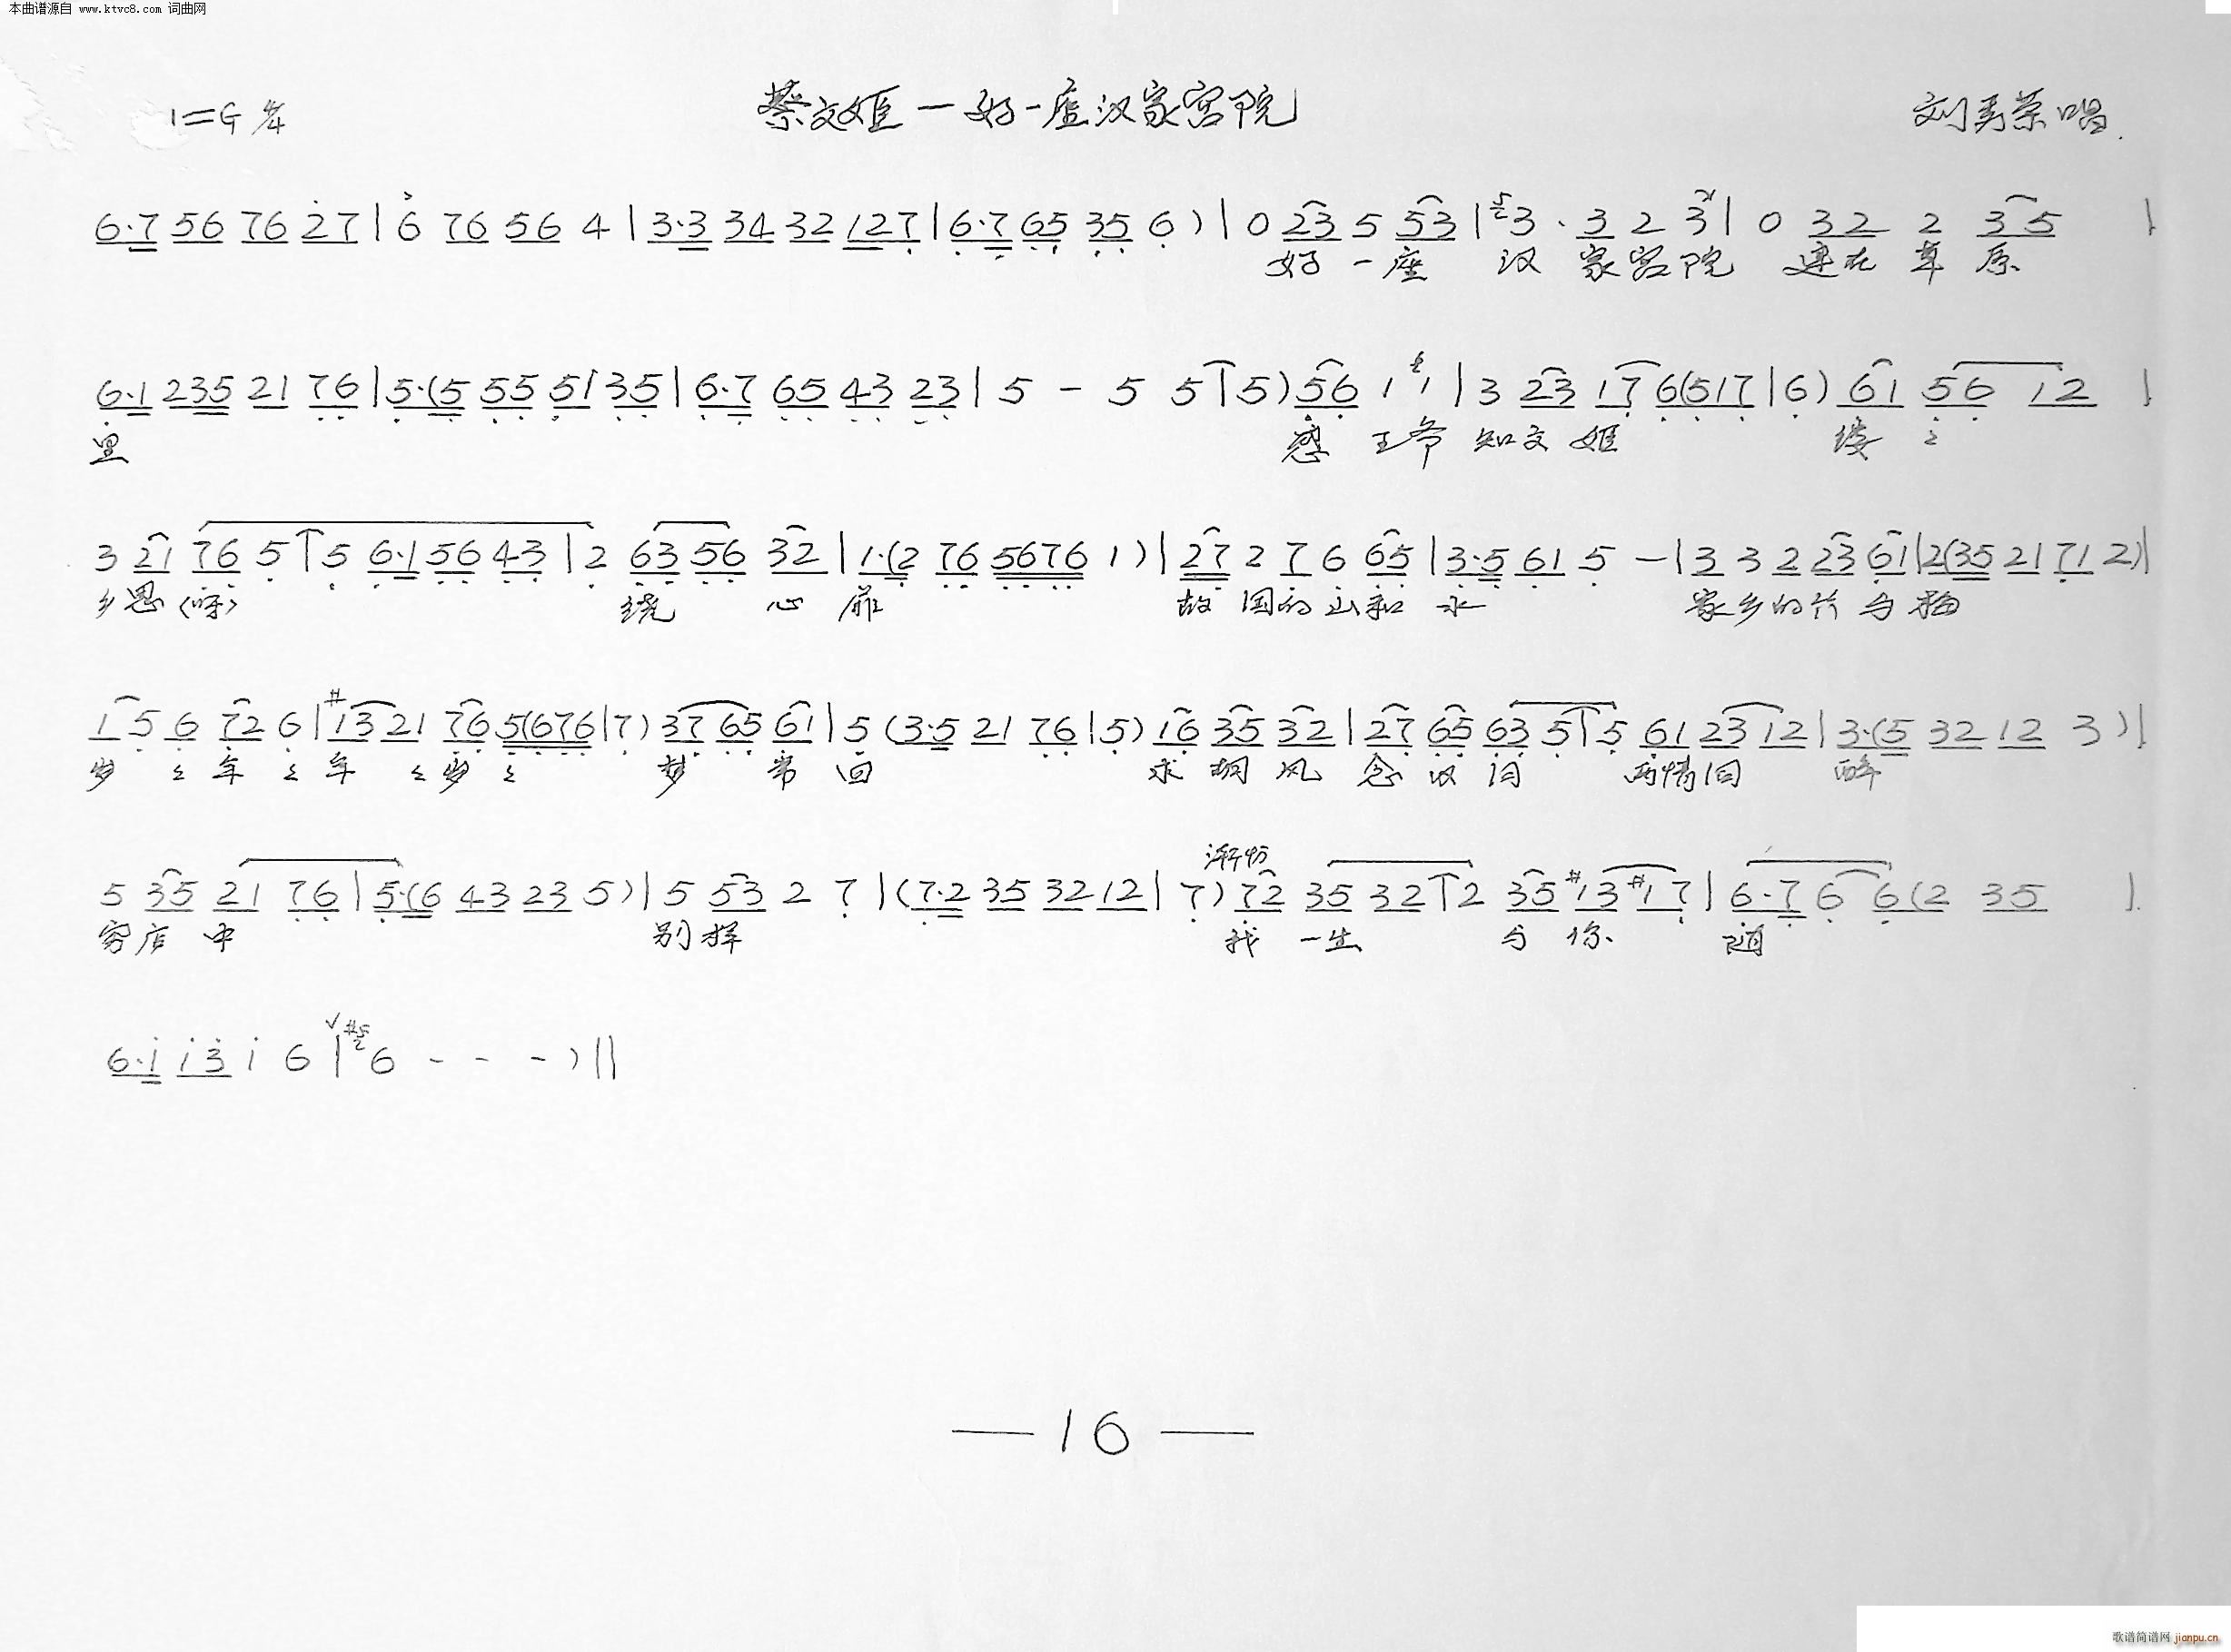 本曲谱源自 www.ktvc8.com 词曲网
1=G 4/4 蔡文姬一好一座汉家宫院 刘秀荣唱
6·7 56 76 27 | 6 76 56 4 | 3·3 34 32 127 | 6·7 65 35 6 ) | 0 23 5 53 | 3 · 3 2 3 | 0 32 2 35 |
好一座 汉家宫院 建在草原
6·1 235 21 76 | 5·(5 55 51 35 | 6·7 65 43 23 | 5 - 5 5 | 5) 56 1 1 | 3 23 17 6(517 | 6) 61 56 12 |
里 感王爷知文姬 缕々
3 21 76 5 | 5 6·1 56 43 | 2 63 56 32 | 1·(2 76 5676 1 ) | 27 2 7 6 65 | 3·5 61 5 - | 3 3 2 23 61 | 2(35 21 71 2) |
乡思(呀) 绕心扉 故国的山和水 家乡的竹与梅
15 6 72 6 | #13 21 76 5(676 | 7) 37 65 61 | 5 (3·5 21 76 | 5) 16 35 32 | 27 65 63 5 | 5 61 23 12 | 3·(5 32 12 3 ) |
岁々年々年々岁々梦常回 求胡风念汉 两情 醉
渐慢
5 35 21 76 | 5·(6 43 23 5) | 5 53 2 7 | (7·2 35 32 12 | 7) 72 35 32 | 2 35 #13 #17 | 6·7 6 6(2 35 |
中 别 我一生与你随
6·1 13 1 6 | #5 6 - - - ) ||
— 16 —
歌谱简谱网 jianpu.cn